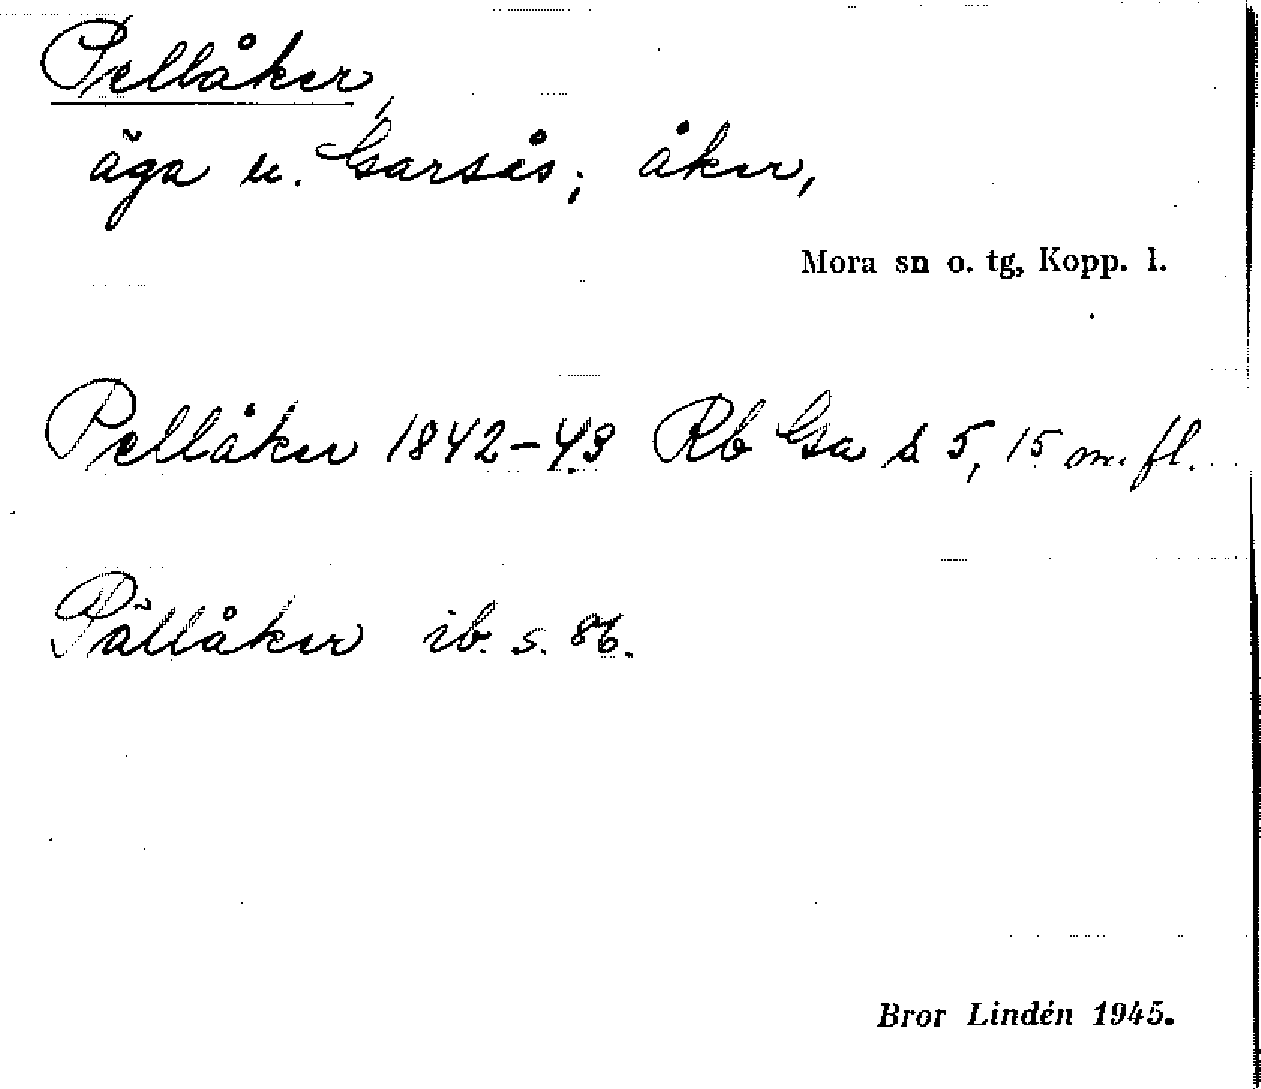 Pellåker,
äga u. Garsås; åker,
Mora sn o. tg, Kopp. l.
Pellåker 1842-43 Rb Gsa s 5, 15 m. fl.
Pällåker ib. s. 86.
Bror Lindén 1945.